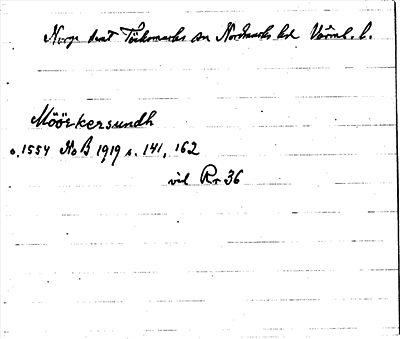 Norge samt Töcksmarks o Nordmarks hd Värml. l.
Möörkersundh
o. 1554 NoB 1919 s. 141, 162
vid Rr 36